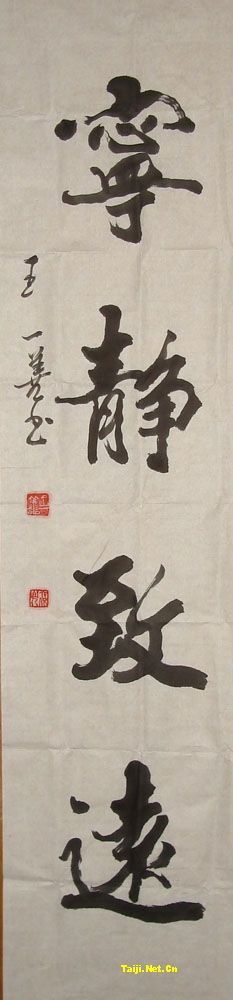 寧靜致遠
王一善书
Taiji.Net.Cn